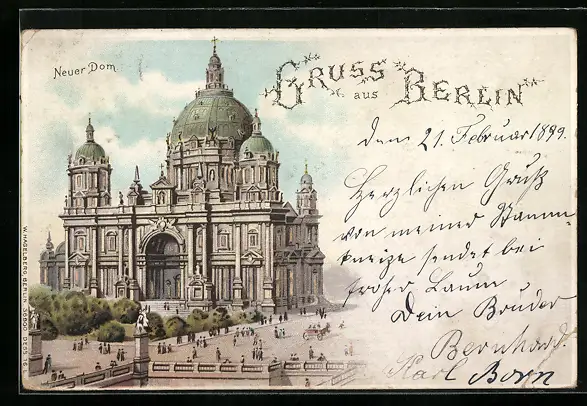 Neuer Dom
Gruss
aus Berlin
dem 21. Februar 1899.
Herzlichen Gruß
von meiner Stamm-
kneipe sendet bei
froher Laune
Dein Bruder
Bernhard.
Karl Born
W. HAGELBERG, BERLIN.